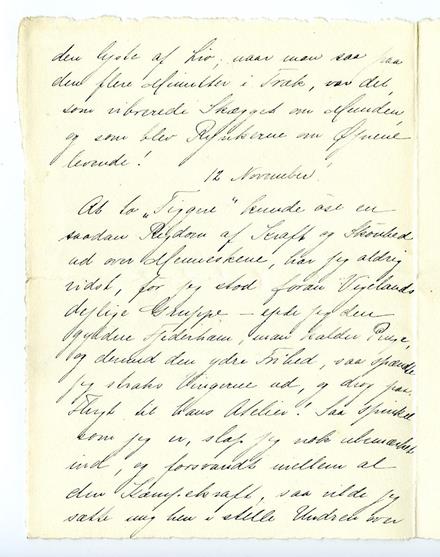 den lyste af Liv; naar man saa paa
den flere Minutter i Træk, var det,
som vibrerede Skægget om Munden,
og som blev Rynkerne om Øjnene
levende!
12 November!
At to „Tiggere“ kunde øse en
saadan Rigdom af Kraft og Skønhed
ud over Menneskene, har jeg aldrig
vidst, før jeg stod foran Vigelands
dejlige Gruppe – ejede jeg den
gyldne Fjederham, man kalder Penge,
og dermed den ydre Frihed, saa spændte
jeg straks Vingerne ud, og drog paa
Flugt til Hans Atelier! Saa spinkel
som jeg er, slap jeg nok ubemærket
ind, og forsvandt mellem al
den Kæmpekraft, saa vilde jeg
sætte mig hen i stille Undren over